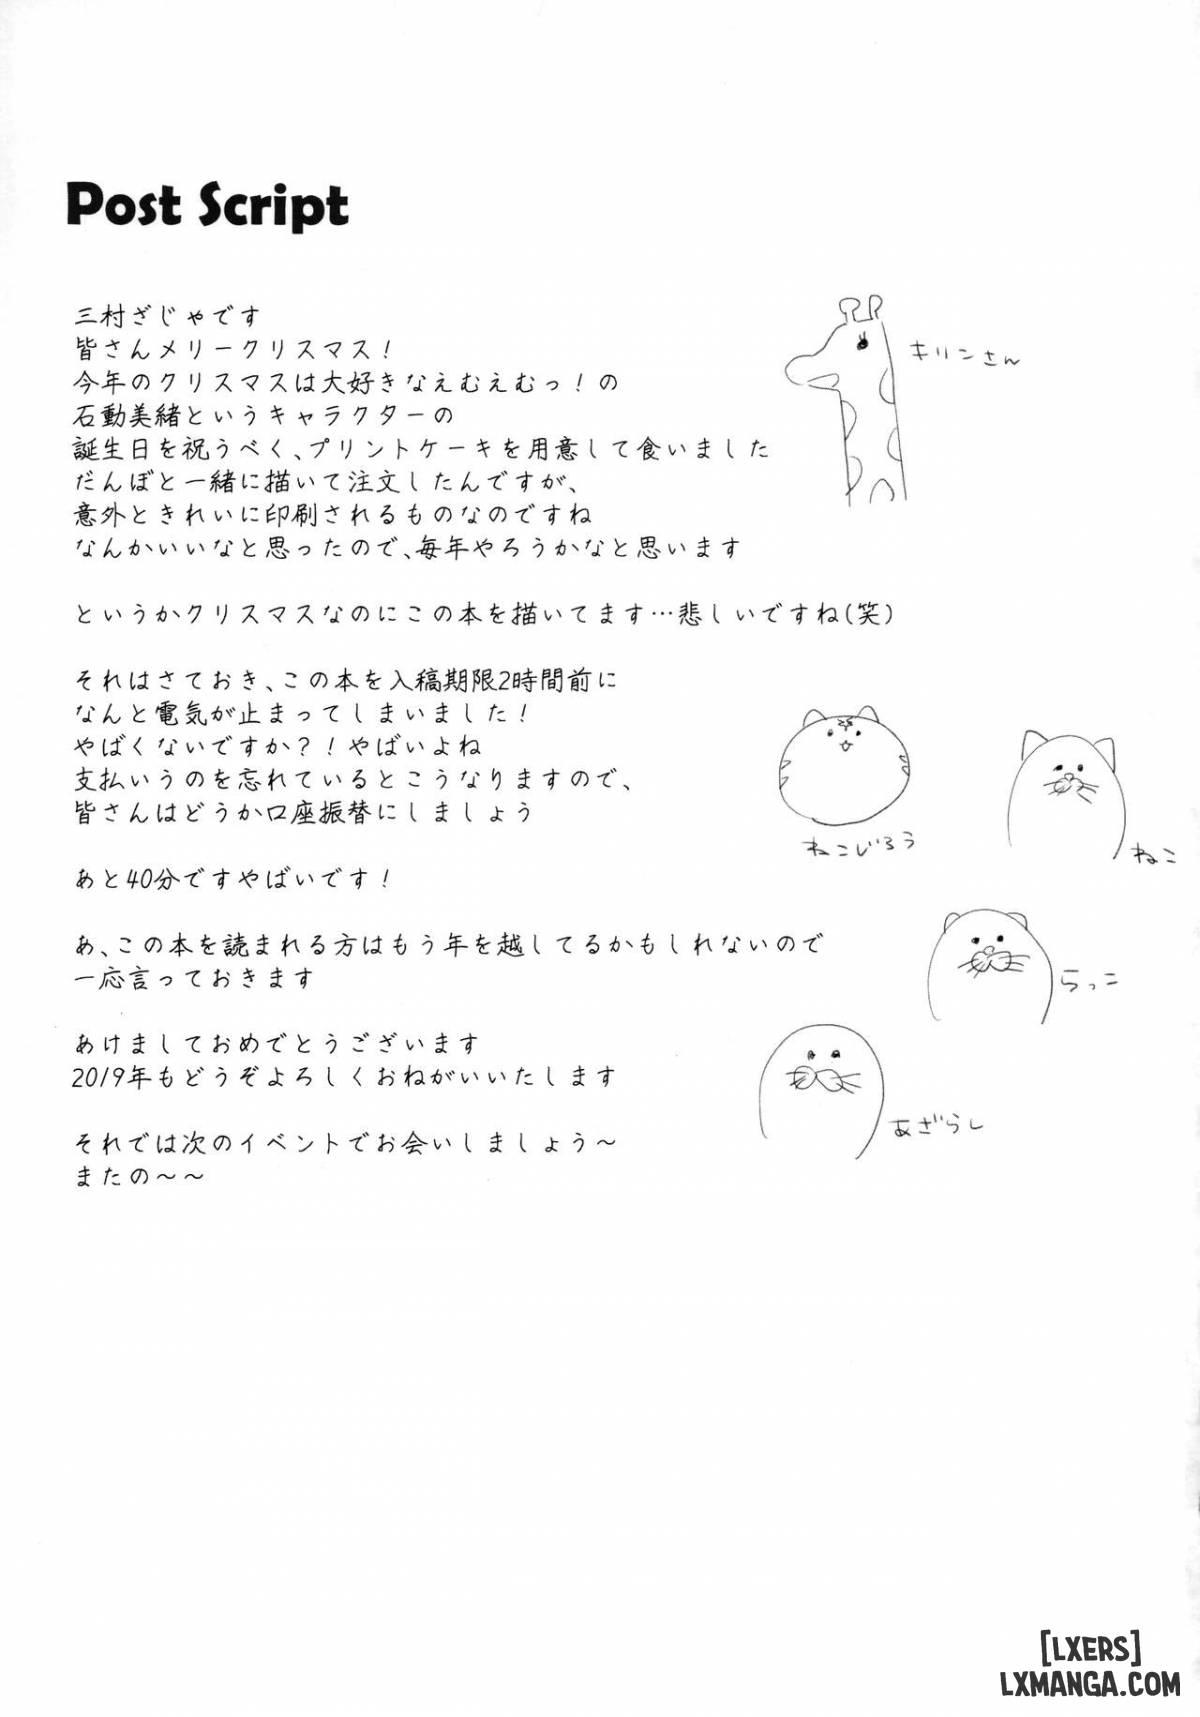 Post Script
三村ざじゃです
皆さんメリークリスマス!
今年のクリスマスは大好きなえむえむっ!の
石動美緒というキャラクターの
誕生日を祝うべく、プリントケーキを用意して食いました
だんぼと一緒に描いて注文したんですが、
意外ときれいに印刷されるものなのですね
なんかいいなと思ったので、毎年やろうかなと思います
というかクリスマスなのにこの本を描いてます…悲しいですね(笑)
それはさておき、この本を入稿期限2時間前に
なんと電気が止まってしまいました!
やばくないですか?!やばいよね
支払いうのを忘れているとこうなりますので、
皆さんはどうか口座振替にしましょう
あと40分ですやばいです!
あ、この本を読まれる方はもう年を越してるかもしれないので
一応言っておきます
あけましておめでとうございます
2019年もどうぞよろしくおねがいいたします
それでは次のイベントでお会いしましょう～
またの～～
キリンさん
ねこじろう
ねこ
らっこ
あざらし
[LXERS]
LXMANGA.COM